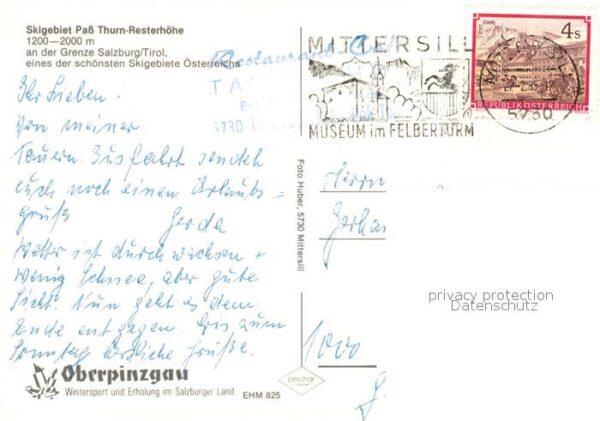 Skigebiet Paß Thurn-Resterhöhe
1200—2000 m
an der Grenze Salzburg/Tirol,
eines der schönsten Skigebiete Österreichs
Ihr Lieben.
Von meiner
Tauern. Busfahrt sende ich
Euch noch einen Urlaubs=
gruß Gerda
Wetter ist durchwachsen +
wenig Schnee, aber gute
Sicht. Nun geht es dem
Ende entgegen. Bis zum
Sonntag herzliche Grüße.
Oberpinzgau
Wintersport und Erholung im Salzburger Land
EHM 825
Foto Huber, 5730 Mittersill
MITTERSILL
MUSEUM im FELBERTURM
5730
4 S
REPUBLIK ÖSTERREICH
5730
Herrn
1000
privacy protection
Datenschutz